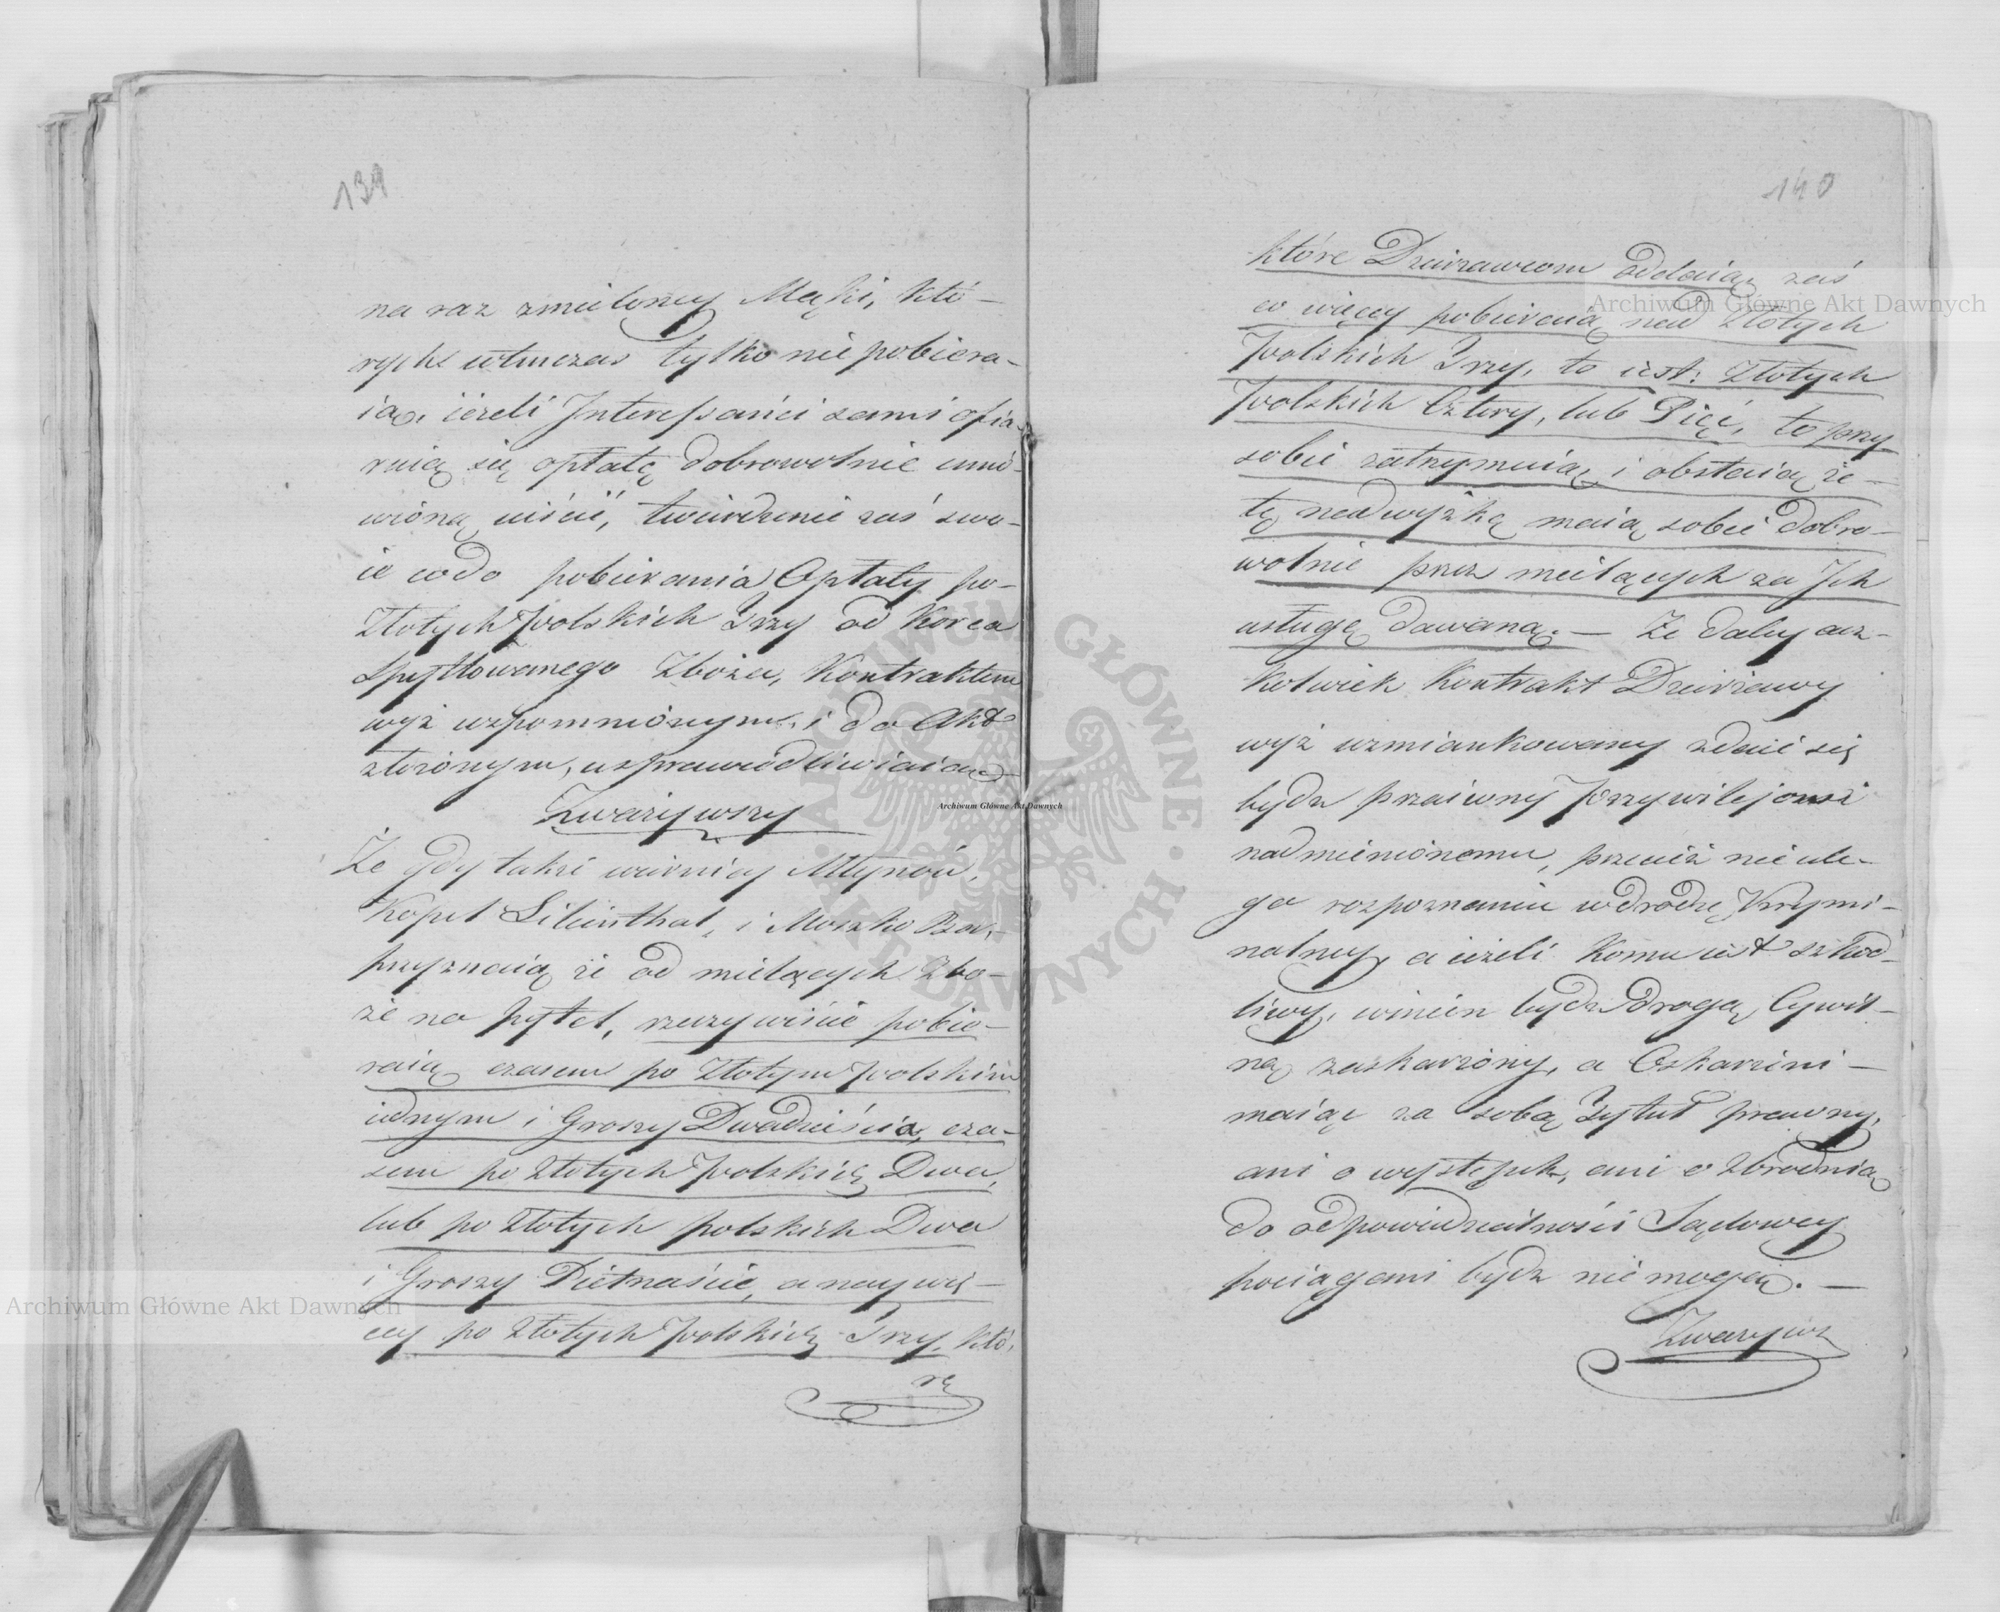 139
na raz zmieloney Mąki, któ-
rych wtenczas tylko nie pobiera-
ią, ieżeli Interessańci sami ofia-
ruią się opłatę dobrowolnie umó-
wioną uiścić, twierdzenie zaś swo-
ie codo pobierania Opłaty po
Złotych Polskich Trzy od Korca
Spytlowanego Zboża, Kontraktem
wyż wspomnionym, i do Akt
złożonym, usprawiedliwiaią
Zważywszy
Że gdy także wiernicy Młynów,
Kopel Lilienthal, i Moszko
przyznaią że od mielących Zbo-
że na Pytel, rzeczywiście pobie-
raią czasem po Złotym Polskim
iednym i Groszy Dwadzieścia, cza-
sem po Złotych Polskich Dwa,
lub po Złotych polskich Dwa
i Groszy Pietnaście, a naywię-
cey po Złotych Polskich Trzy, któ-
rę
140
które Dzierzawcom oddaią zaś
co więcey pobieraią nad Złotych
Polskich Trzy, to iest: Złotych
Polskich Cztery, lub Pięć, to przy
sobie zatrzymuią i obstaią że
tę nadwyżkę maią sobie dobro-
wolnie przez mielących za Ich
usługę dawaną. — Że daley acz-
kolwiek Kontrakt Dzierzawy
wyż wzmiankowany zdaie się
bydz przeciwny Przywilejowi
nadmienionemu, przecież nie ule-
ga rozpoznaniu w drodze Krymi-
nalney, a ieżeli Komu iest szkod-
liwy, winien bydz drogą Cywil-
ną zaskarzony, a Oskarzeni
maiąc za sobą Tytuł prawny,
ani o występek, ani o Zbrodnią
do odpowiedzialności Sądowey
pociągani bydz nie mogą. —
Zważyws
Archiwum Główne Akt Dawnych
Archiwum Główne Akt Dawnych
Archiwum Główne Akt Dawnych
ARCHIWUM GŁÓWNE · AKT DAWNYCH ·